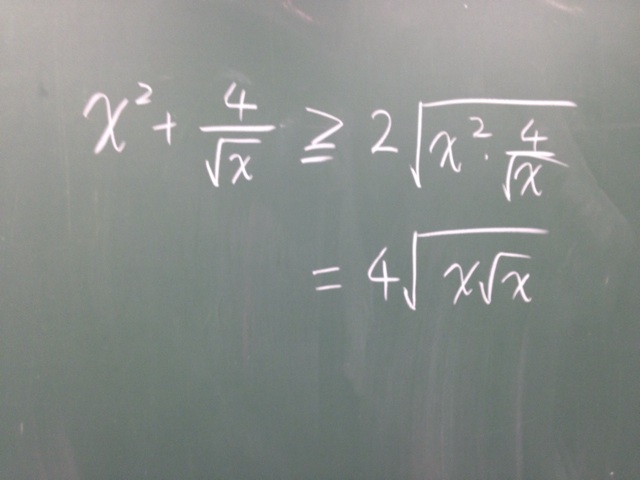 x² + 4/√x ≧ 2√(x² · 4/√x)
= 4√(x√x)